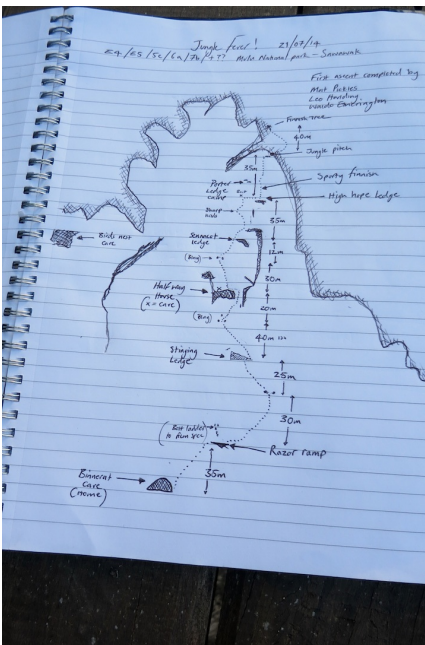 Jungle fever! 21/07/14
E4/E5/5c/6a/7b/+?? Mulu National park - Sarawak
First ascent completed by
Mat Pickles
Leo Houlding
Waldo Etherington
Finnish tree
40m
Jungle pitch
35m
Sporty finnish
Porter
Ledge
High hope Ledge
Sharp
35m
Birds nest
cave
Sennacot
Ledge
12m
(Bing)
30m
Half way
House
(x-cave)
20m
(Bing)
40m
Stinging
Ledge
25m
30m
(Bat ladder
Razor ramp
35m
Binnerat
Cave
(Home)